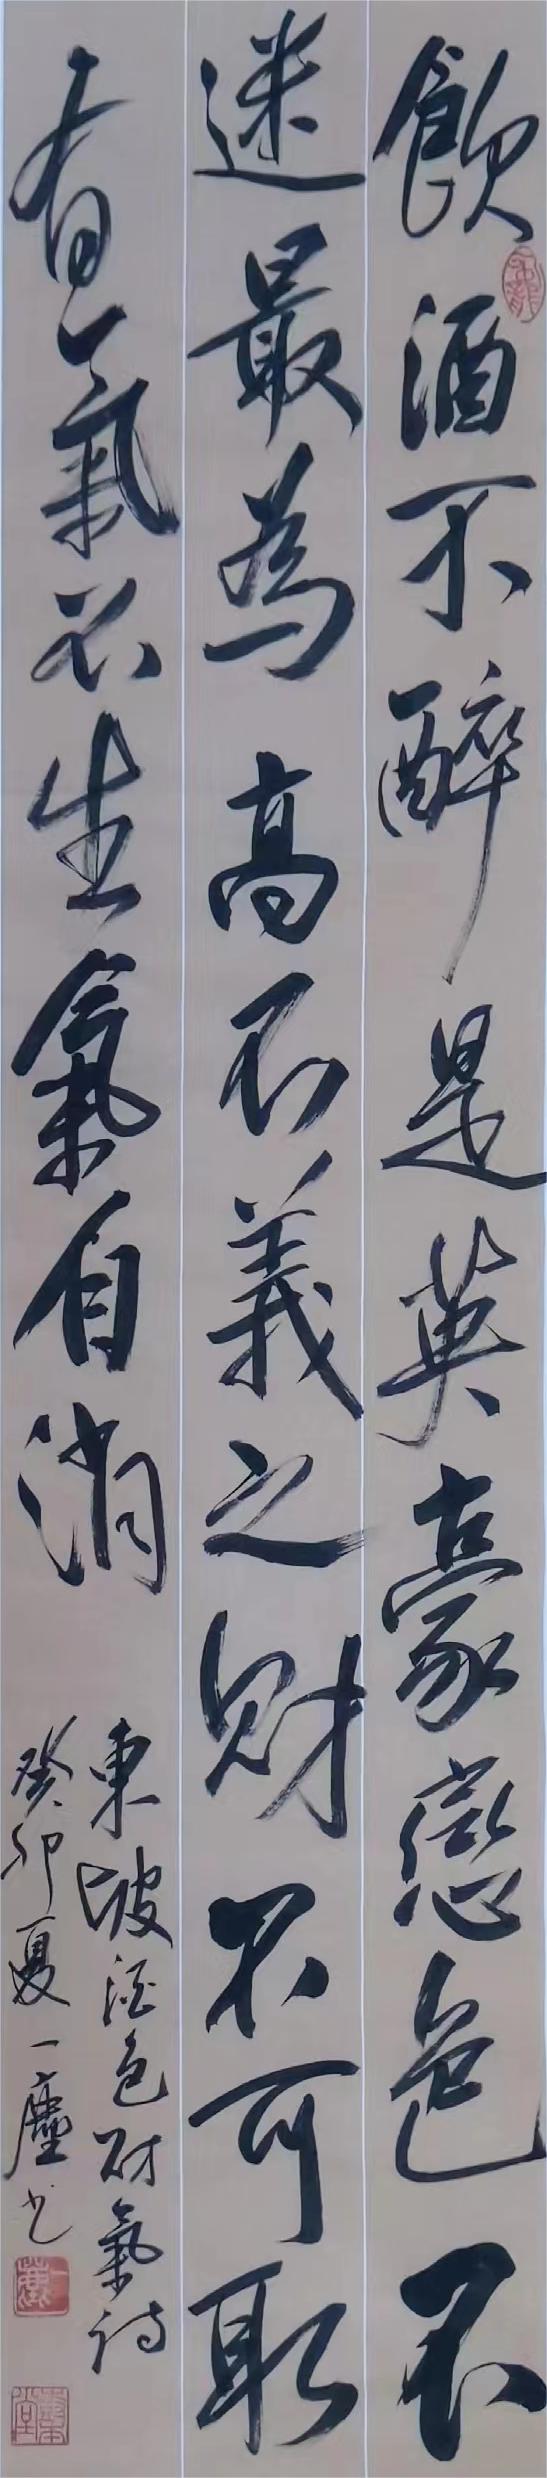 飲酒不醉是英豪戀色不
迷最為高不義之財不可取
有氣不生氣自消
東坡酒色財氣詩
癸卯夏一塵书